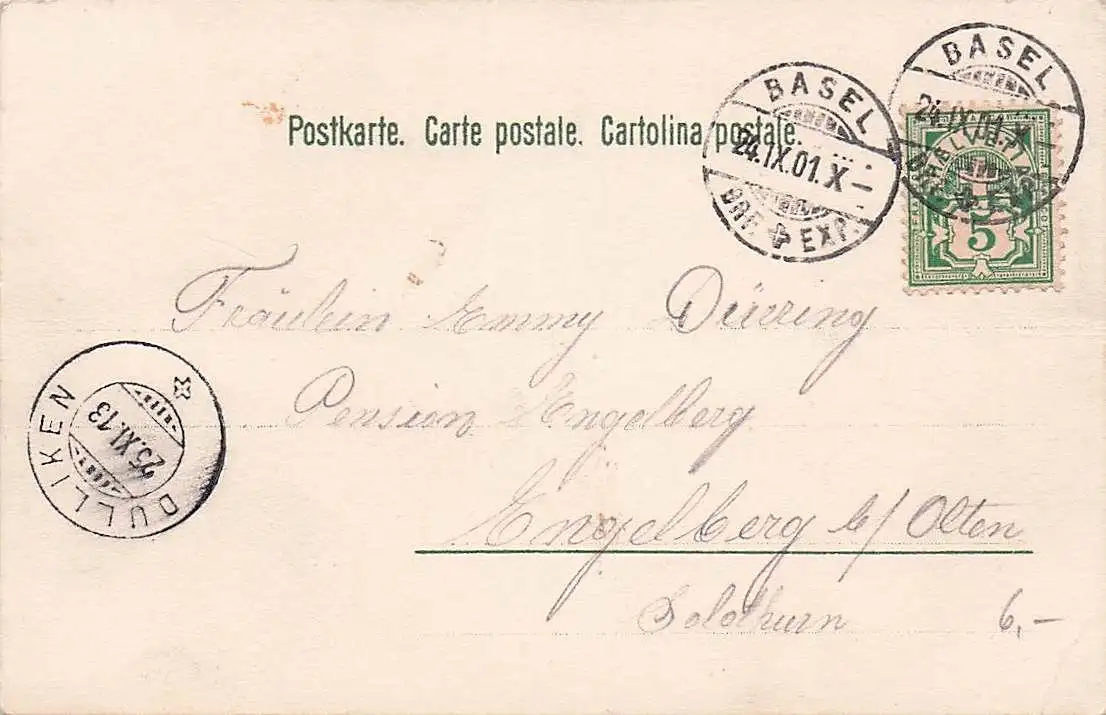 Postkarte. Carte postale. Cartolina postale.
BASEL
24.IX.01.X–
BRF. EXP.
BASEL
24.IX.01.X–
HELVETIA
5
Fräulein Emmy Düring
Pension Engelberg
Engelberg b/ Olten
Solothurn 6,–
DULLIKEN
25.XI.13